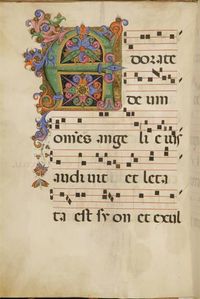 Adorate
de um
om̄es ange li e iꝰ
audi uit et leta
ta est sy on et exul